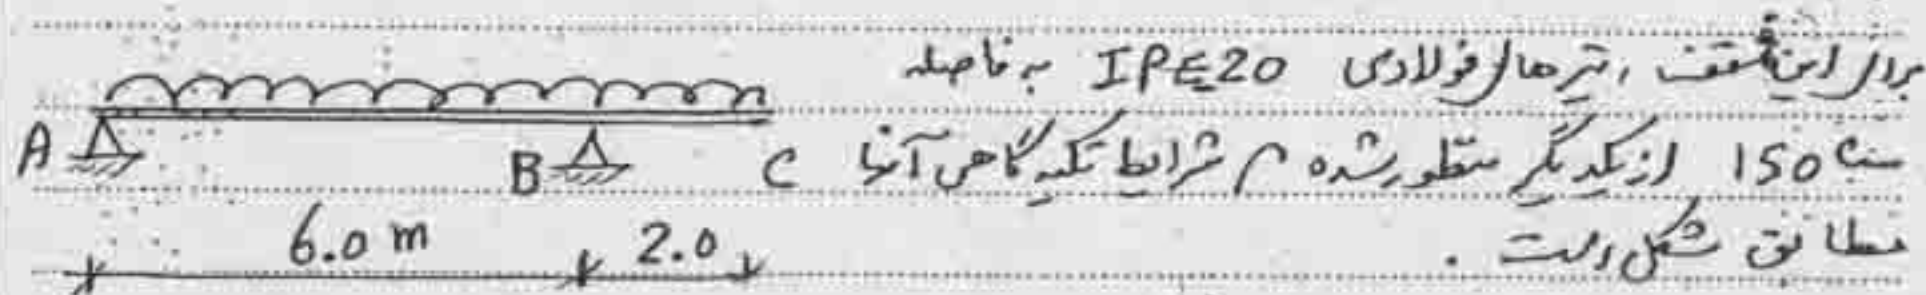 برای این سقف ، تیرهای فولادی IPE20 به فاصله
150 سانت از یکدیگر منظور شده و شرایط تکیه گاهی آنها
مطابق شکل است .
A B C
6.0 m 2.0